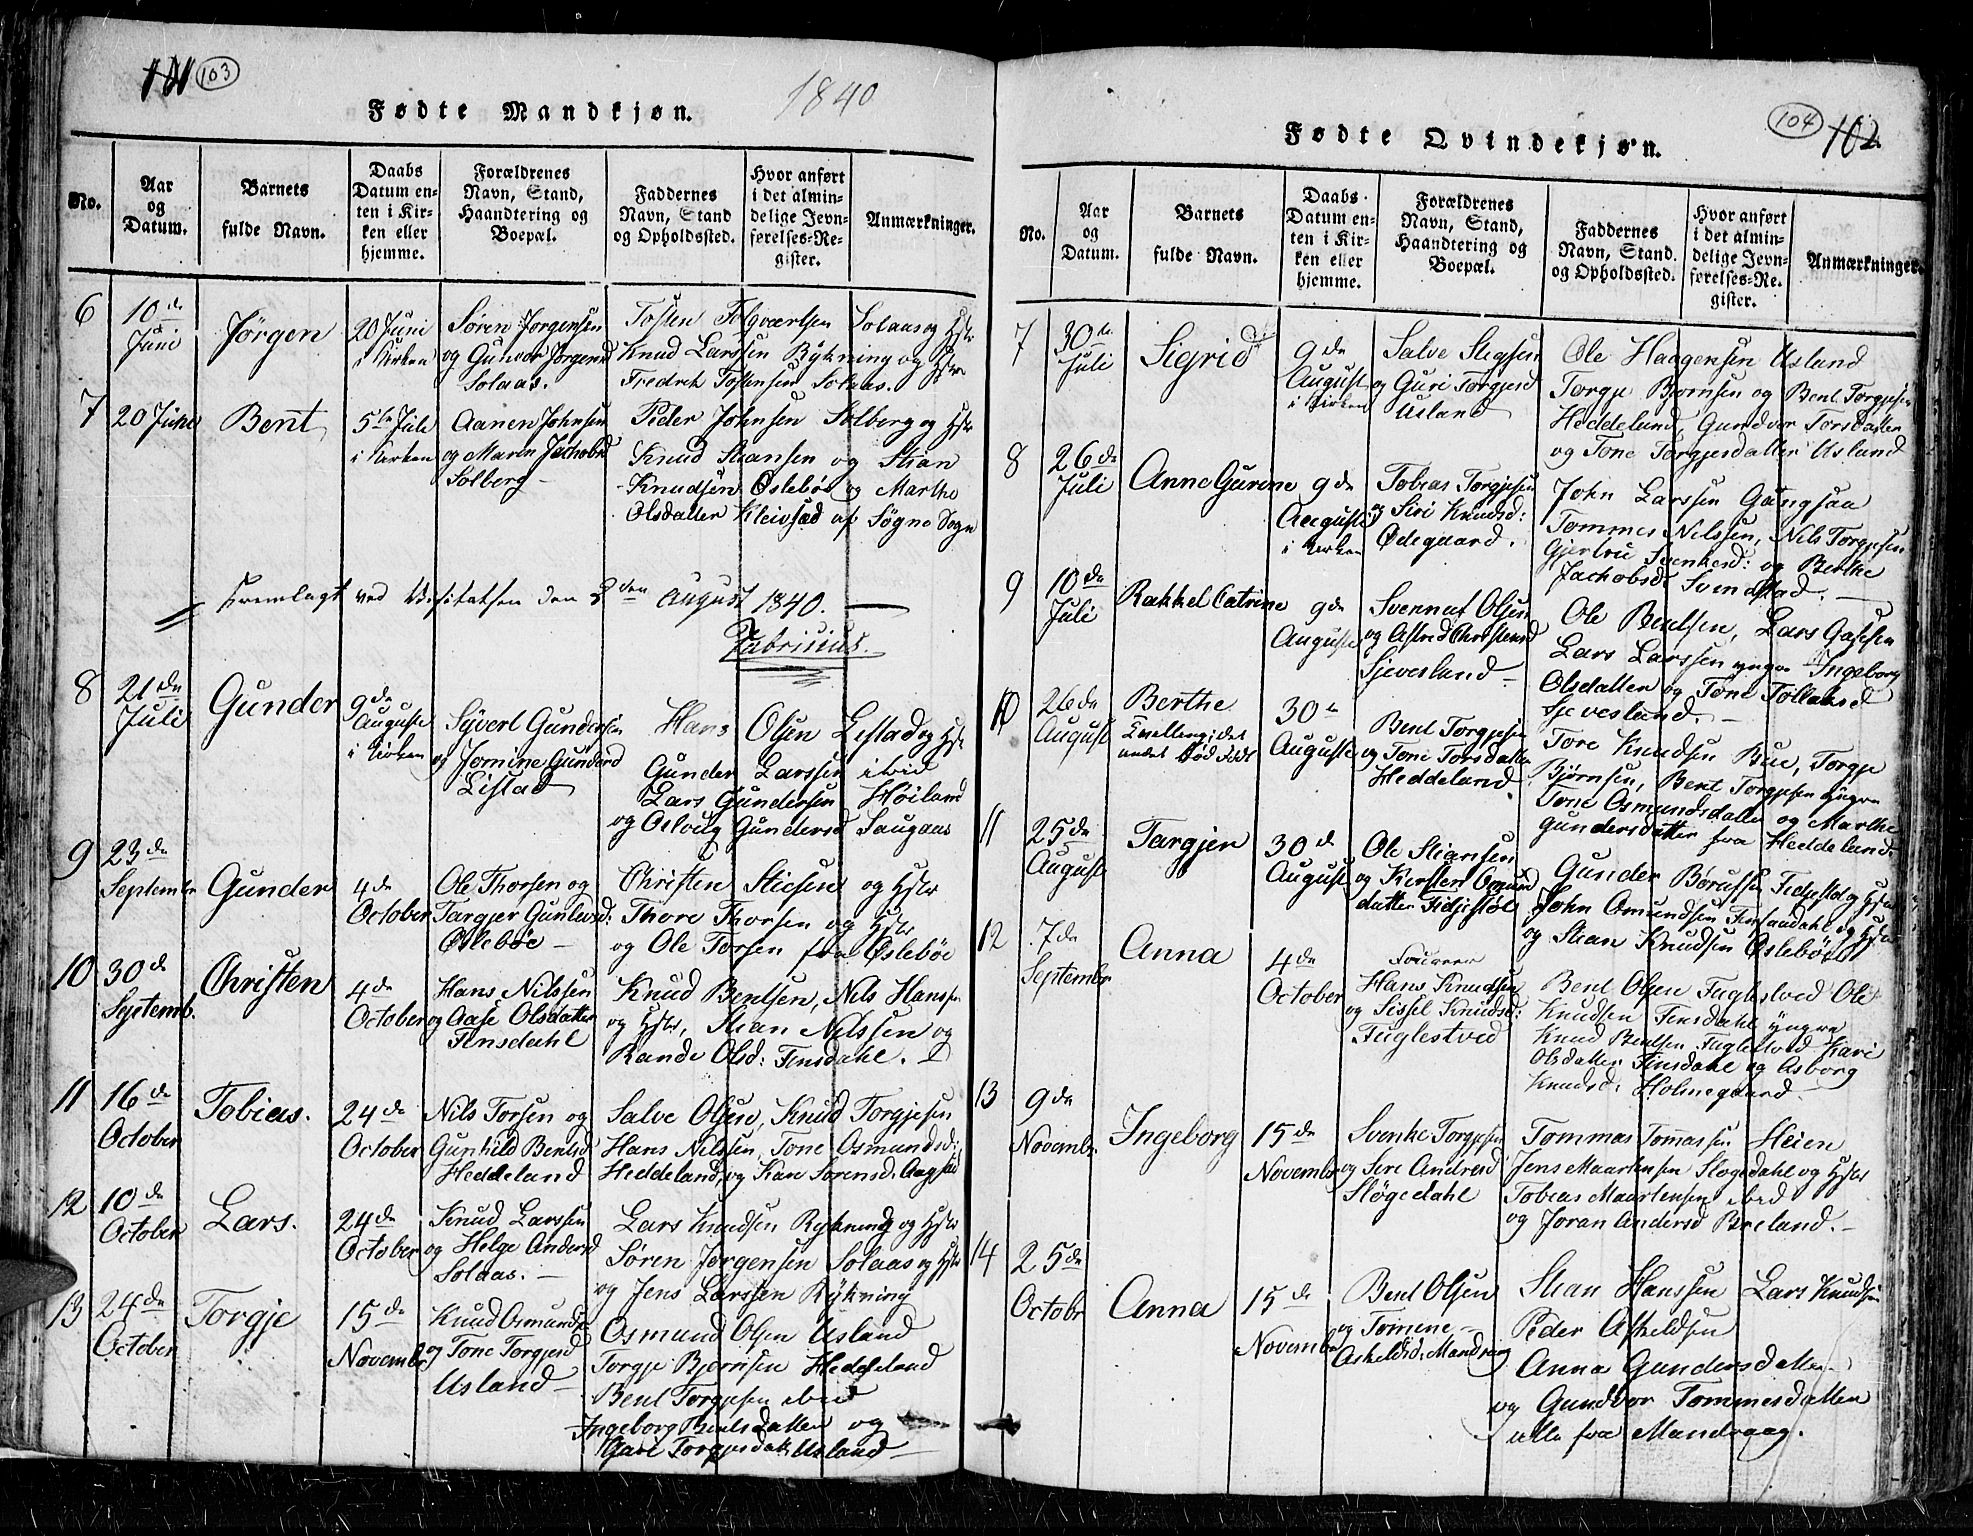 101 103
Fødte Mandkjøn.
1840
No.
Aar og Datum.
Barnets fulde Navn.
Daabs Datum enten i Kirken eller hjemme.
Forældrenes Navn, Stand, Haandtering og Boepæl.
Faddernes Navn, Stand og Opholdssted.
Hvor anført i det almindelige Jevnførelses-Register.
Anmærkninger.
6
10de
Juni
Jörgen
20 Juni
i Kirken
Søren Jorgensen
og Gunvor Jorgensd
Solaas.
Tosten Folqvartsen Solaas og Hstr
Knud Larssen Rykning og Hstr
Fredrik Tostensen Solaas.
7
20 Juni
Bent
5te Juli
i Kirken
Aanen Johnsen
og Maren Jachobsd
Solberg
Peder Johnsen Solberg og Hstr
Knud Stiansen og Stian
Knudsen Oslebøe og Marthe
Olsdatter Kleivsæd af Søgne Sogn
Fremlagt ved Visitatsen den 3den August 1840.
Fabricius.
8
21de
Juli
Gunder
9de
Auguste
i Kirken
Syvert Gundersen
og Jomine Gundersd
Listad
Hans Olsen Listad og Hstr
Gunder Larssen ibid
Lars Gundersen Høiland
og Osloug Gundersd Saugaas
9
23de
Septembr
Gunder
4de
October
Ole Thorsen og
Targjer Gunlevsd:
Oslebøe
Christen Sticsen og Hstr
Thore Thorsen og Hstr
og Ole Torsen fra Øslebøe
10
30de
Septemb.
Christen
4de
October
Hans Nilssen
og Aase Olsdatter
Finsdahl
Knud Bentsen, Nils Hanssen
og Hstr, Stian Nilssen og
Rande Olsd: Finsdahl.
11
16de
October
Tobias.
24de
October
Nils Torsen og
Gunhild Bentsd
Heddeland
Salve Olsen, Knud Torgjesen
Hans Nilssen, Tone Osmundsd:
Heddeland, og Kari Sorensd: Aagstad
12
10de
October
Lars.
24de
October
Knud Larssen
og Helge Andersd
Solaas.
Lars Knudsen Rykning og Hstr
Søren Jorgensen Solaas og Hstr
og Jens Larssen Rykning
13
24de
October
Torgje
15de
Novembr
Knud Osmundsen
og Tone Torgjersd
Usland
Osmund Olsen Usland
Torgje Bjornsen Heddeland
Bent Torgjesen ibid
Ingeborg Bentsdatter og
Guri Torgjesdatt Usland
104 102
Fødte Qvindekjøn.
No.
Aar og Datum.
Barnets fulde Navn.
Daabs Datum enten i Kirken eller hjemme.
Forældrenes Navn, Stand, Haandtering og Boepæl.
Faddernes Navn, Stand. og Opholdssted.
Hvor anført i det almindelige Jevnførelses-Register.
Anmærkninger.
7
30te
Juli
Sigrid
9de
August
i Kirken
Salve Stigsen
og Guri Torgjersd
Usland
Ole Haagensen Usland
Torgje Bjornsen og Bent Torgjesen
Heddeland, Gundvor Torsdatter
og Tone Torgjesdatter Usland
8
26de
Juli
Anne Gurine
9de
Auguste
i Kirken
Tobias Torgjesen
og Siri Knudsd:
Ødegaard.
John Larssen Gangsaa
Tommes Nilssen, Nils Torgjesen
Gjertru Svenkesd: og Berthe
Jachobsd: Svindstad.
9
10de
Juli
Rakkel Catrine
9de
Auguste
Svennut Olsen
og Astrid Christensd
Sjevesland
Ole Bentsen, Lars Gasesen
Lars Larssen yngre Ingeborg
Olsdatter og Tone Tollaksd
Sjevesland.
10
26de
August
Berthe
Tvilling; det
andet død født
30te
Auguste
Bent Torgjesen
og Tone Torsdatter
Heddeland
Tore Knudsen Bue, Torgje
Bjørnsen, Bent Torgjesen yngre
Tone Osmundsdatter og Marthe
Gundersdatter fra Heddeland.
11
25de
August
Targjer
30de
August
Ole Stiansen
og Kirsten Omund
datter Fidjestøl
Gunder Børufsen Fidjestøl og Hstr
John Omundsen Finsaadahl og Hstr
og Stian Knudsen Øslebøe
12
7de
Septembr
Anna
4de
October
Hans Knudsen
og Sissel Knudsd:
Fuglestved
Bent Olsen Fuglestved Ole
Knudsen Finsdahl yngre
Knud Bentsen Fuglestved Kari
Olsdatter Finsdahl og Asborg
Knudsd: Holmegaard.
13
9de
Novembr
Ingeborg
15de
Novembr
Svenke Torgjesen
og Sire Andresd
Sløgedahl
Tommas Tomassen Heien
Jens Maartensen Slogedahl og Hstr
Tobias Maartensen ibid
og Joran Andersd Breland.
14
25de
Octobr
Anna
15de
Novembr
Bent Olsen
og Tomine
Askeldsd: Mandraag
Stian Hanssen Lars Knudsen
Peder Askeldsen
Anna Gundersdatter
og Gundvor Tommesdatter
alle fra Mandraag.